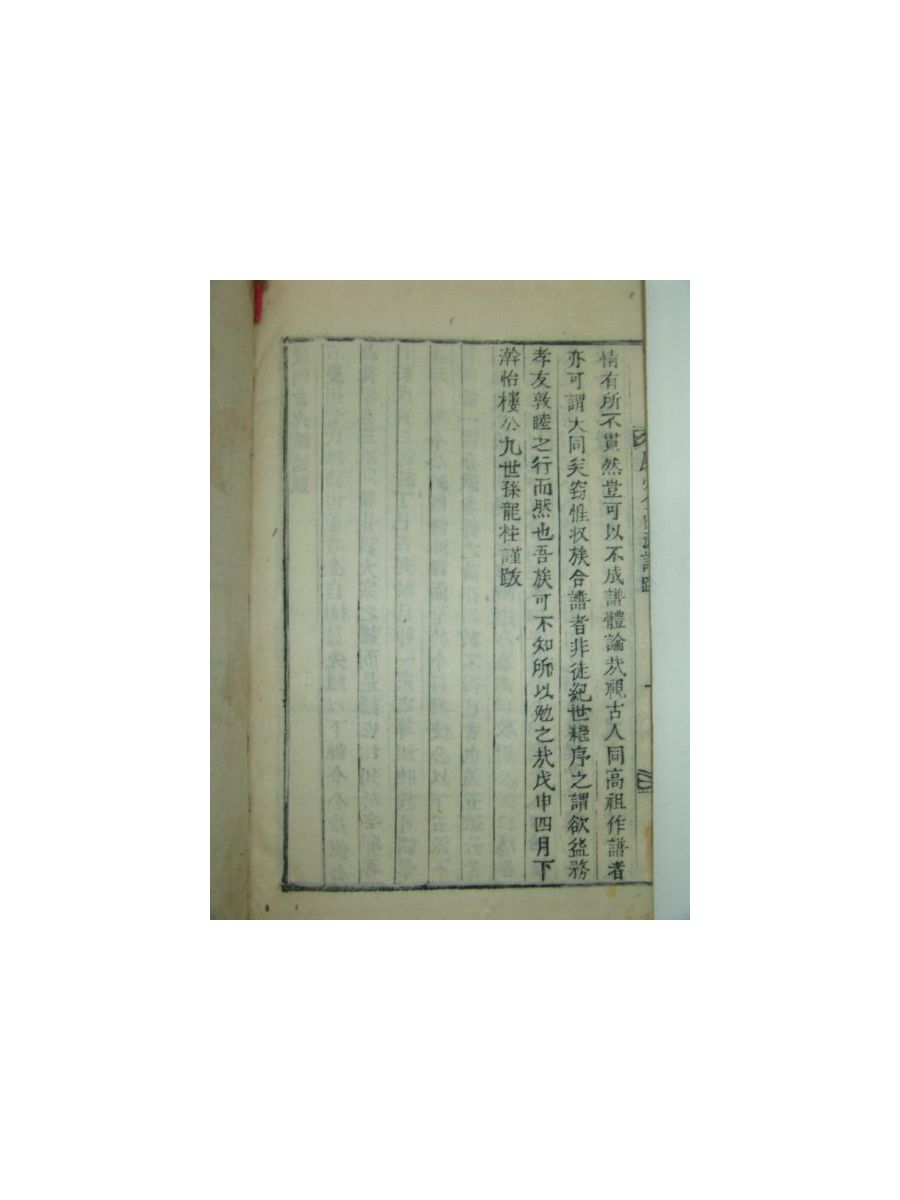 情有所不貫然豈可以不成譜體論哉覵古人同高祖作譜者
亦可謂大同矣竊惟収族合譜者非徒紀世繼序之謂欲益務
孝友敦睦之行而然也吾族可不知所以勉之哉戊申四月下
澣怡樓公九世孫龍柱謹跋
譜跋